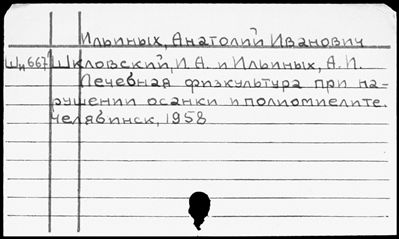 Ильиных, Анатолий Иванович
Ши667 Шкловский, И.А. и Ильиных, А.И.
Лечебная физкультура при на-
рушении осанки и полиомиелите.
Челябинск, 1958